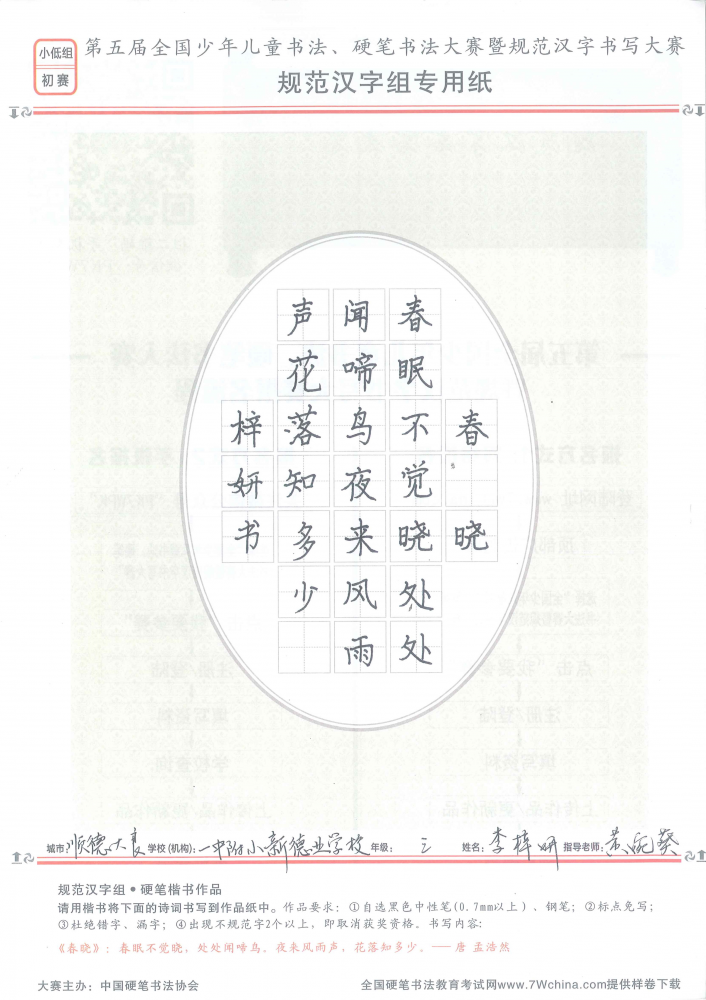 小低组
初赛
第五届全国少年儿童书法、硬笔书法大赛暨规范汉字书写大赛
规范汉字组专用纸
春晓
春眠不觉晓处处
闻啼鸟夜来风雨
声花落知多少
梓妍书
城市:顺德大良 学校(机构):一中附小新德业学校 年级: 三 姓名:李梓妍 指导老师:黄 葵
规范汉字组•硬笔楷书作品
请用楷书将下面的诗词书写到作品纸中。作品要求：①自选黑色中性笔(0.7mm以上）、钢笔；②标点免写；
③杜绝错字、漏字；④出现不规范字2个以上，即取消获奖资格。书写内容：
《春晓》：春眠不觉晓，处处闻啼鸟。夜来风雨声，花落知多少。——唐 孟浩然
大赛主办：中国硬笔书法协会
全国硬笔书法教育考试网www.7Wchina.com提供样卷下载